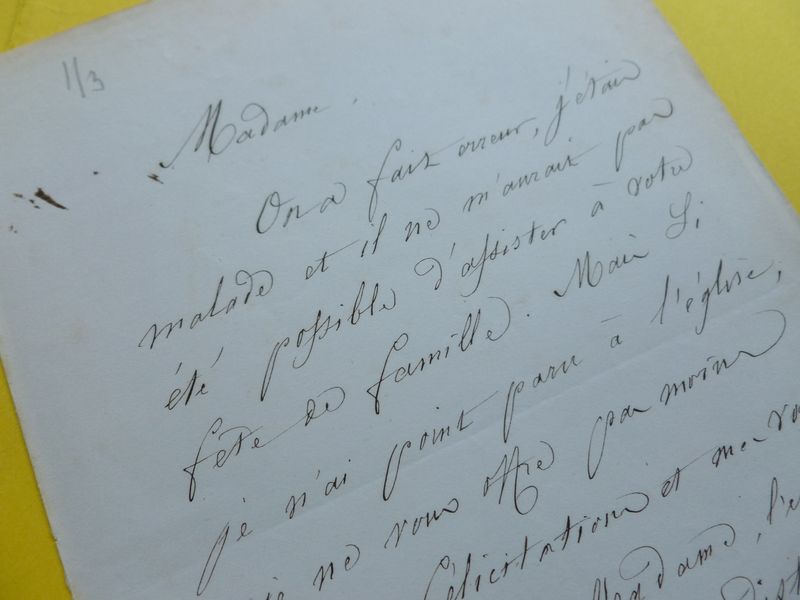 1/3
Madame.
On a fait erreur, j'étais
malade et il ne m'aurait pas
été possible d'assister à votre
fête de famille. Mais si
je n'ai point paru à l'église,
je ne vous offre pas moins
félicitations et mes
Madame,